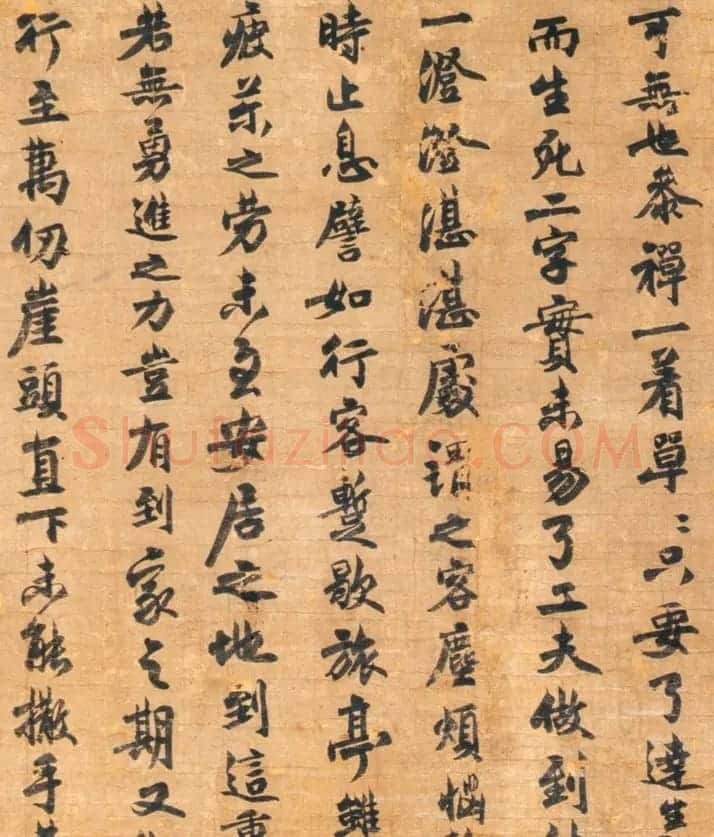 可無也參禪一着單〻只要了達生
而生死二字實未易了工夫做到
一澄澄湛湛處謂之客塵煩惱
時止息譬如行客蹔歇旅亭雖
疲苶之勞未至安居之地到這裏
若無勇進之力豈有到家之期又
行至萬仞崖頭直下未能撒手
ShufaZidao.COM